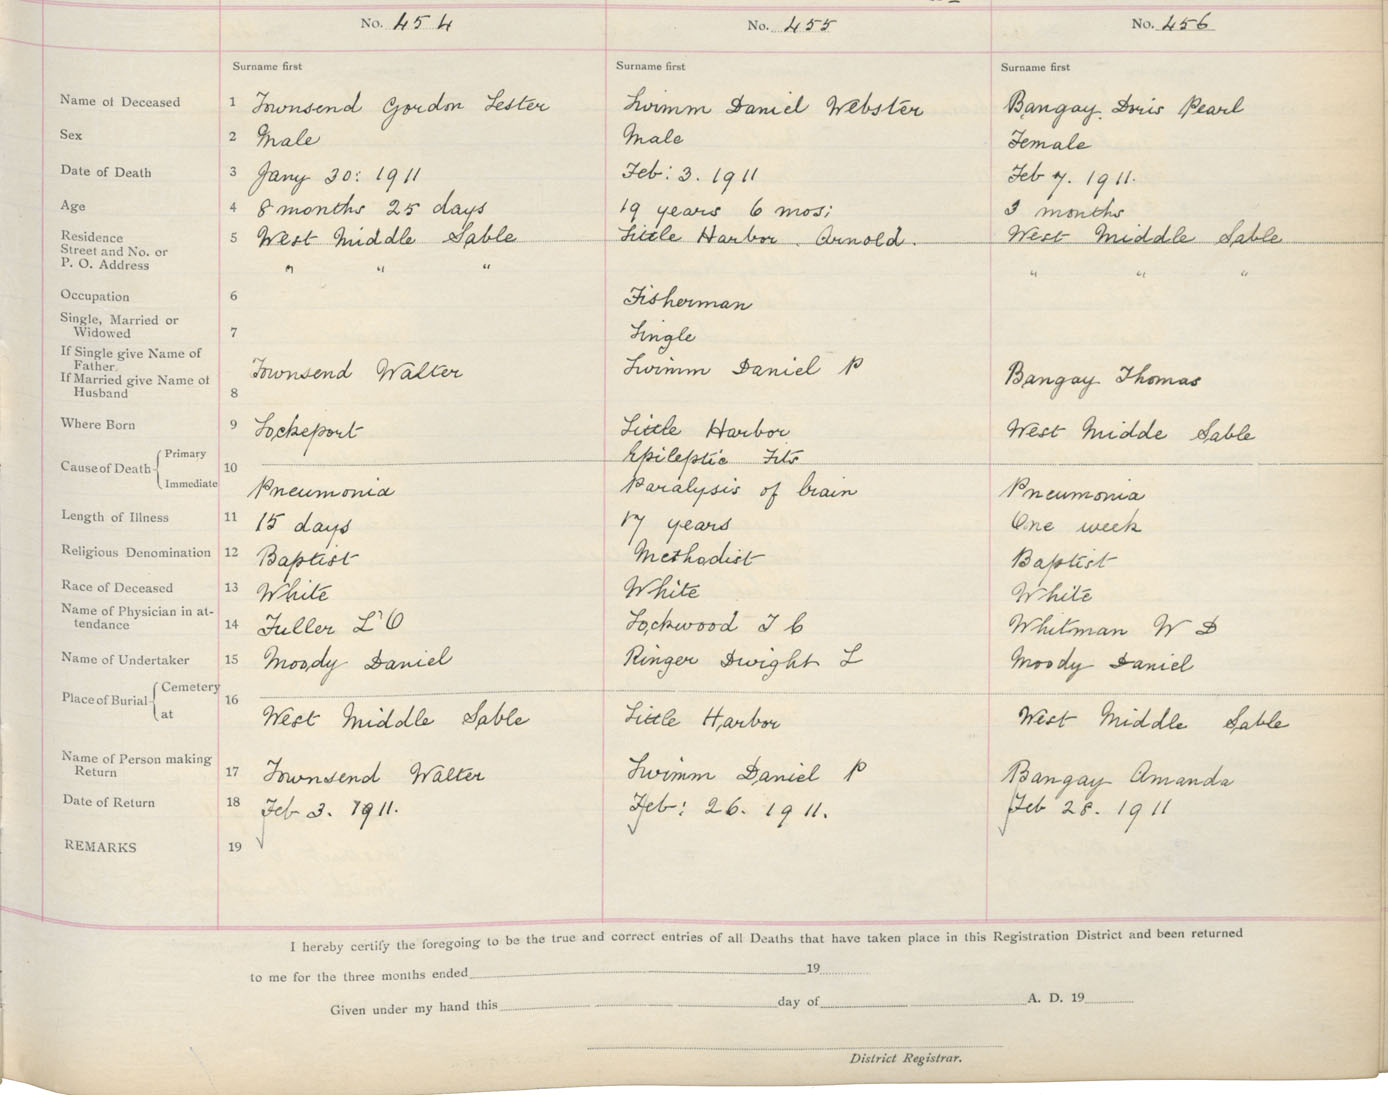 No. 454 No. 455 No. 456
Surname first Surname first Surname first
Name of Deceased 1 Townsend Gordon Lester Swimm Daniel Webster Bangay Doris Pearl
Sex 2 Male Male Female
Date of Death 3 Jany 30: 1911 Feb: 3. 1911 Feb 7. 1911.
Age 4 8 months 25 days 19 years 6 mos: 3 months
Residence 5 West Middle Sable Little Harbor. Arnold. West Middle Sable
Street and No. or
P. O. Address " " " " " "
Occupation 6 Fisherman
Single, Married or
Widowed 7 Single
If Single give Name of
Father. Townsend Walter Swimm Daniel P Bangay Thomas
If Married give Name of
Husband 8
Where Born 9 Lockeport Little Harbor West Midde Sable
Cause of Death Primary 10 Epileptic Fits
Immediate Pneumonia Paralysis of brain Pneumonia
Length of Illness 11 15 days 17 years One week
Religious Denomination 12 Baptist Methodist Baptist
Race of Deceased 13 White White White
Name of Physician in at-
tendance 14 Fuller L O Lockwood T C Whitman W D
Name of Undertaker 15 Moody Daniel Ringer Dwight L Moody Daniel
Place of Burial Cemetery 16
at West Middle Sable Little Harbor West Middle Sable
Name of Person making
Return 17 Townsend Walter Swimm Daniel P Bangay Amanda
Date of Return 18 Feb 3. 1911. Feb: 26. 1911. Feb 28. 1911
REMARKS 19
I hereby certify the foregoing to be the true and correct entries of all Deaths that have taken place in this Registration District and been returned
to me for the three months ended 19
Given under my hand this day of A. D. 19
District Registrar.